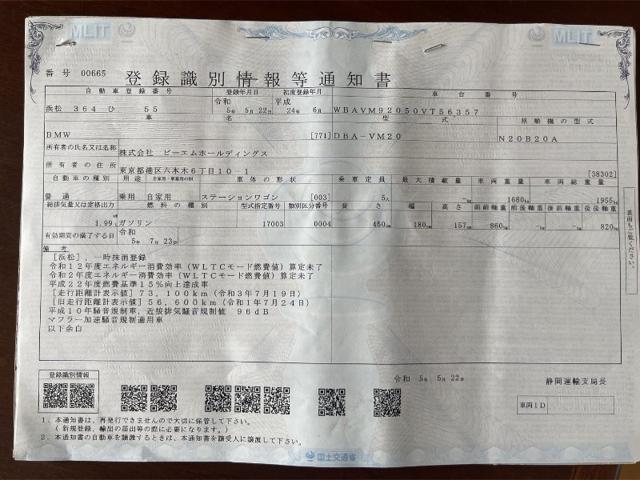 MLIT
番号 00665
登録識別情報等通知書
自動車登録番号 登録年月日 初度登録年月 車台番号
浜松 364 ひ 55 令和 5年 5月 22日 平成 24年 6月 WBAVM92050VT56357
車名 型式 原動機の型式
BMW [771] DBA-VM20 N20B20A
所有者の氏名又は名称 株式会社 ビーエムホールディングス
所有者の住所 東京都港区六本木6丁目10-1 [38302]
自動車の種別 用途 自家用・事業用の別 車体の形状 乗車定員 最大積載量 車両重量 車両総重量
普通 乗用 自家用 ステーションワゴン [003] 5人 1680kg 1955kg
総排気量又は定格出力 燃料の種別 型式指定番号 類別区分番号 長さ 幅 高さ 前前軸重 前後軸重 後前軸重 後後軸重
1.99 ガソリン 17003 0004 450cm 180cm 157cm 860kg 820kg
有効期間の満了する日 令和 5年 7月 23日
備考
[浜松], 一時抹消登録
令和12年度エネルギー消費効率(WLTCモード燃費値)算定未了
令和2年度エネルギー消費効率(WLTCモード燃費値)算定未了
平成22年度燃費基準15%向上達成車
[走行距離計表示値] 73,100km(令和3年7月19日)
[旧走行距離計表示値] 56,600km(令和1年7月24日)
平成10年騒音規制車, 近接排気騒音規制値 96dB
マフラー加速騒音規制適用車
以下余白
裏面もご覧ください。
登録識別情報
令和 5年 5月 22日 静岡運輸支局長
車両ID
1. 本通知書は、再発行できませんので大切に保管して下さい。
(新規登録、輸出の届出等の際に必要になります。)
2. 本通知書の自動車を譲渡するときは、本通知書を譲受人に譲渡して下さい。
国土交通省